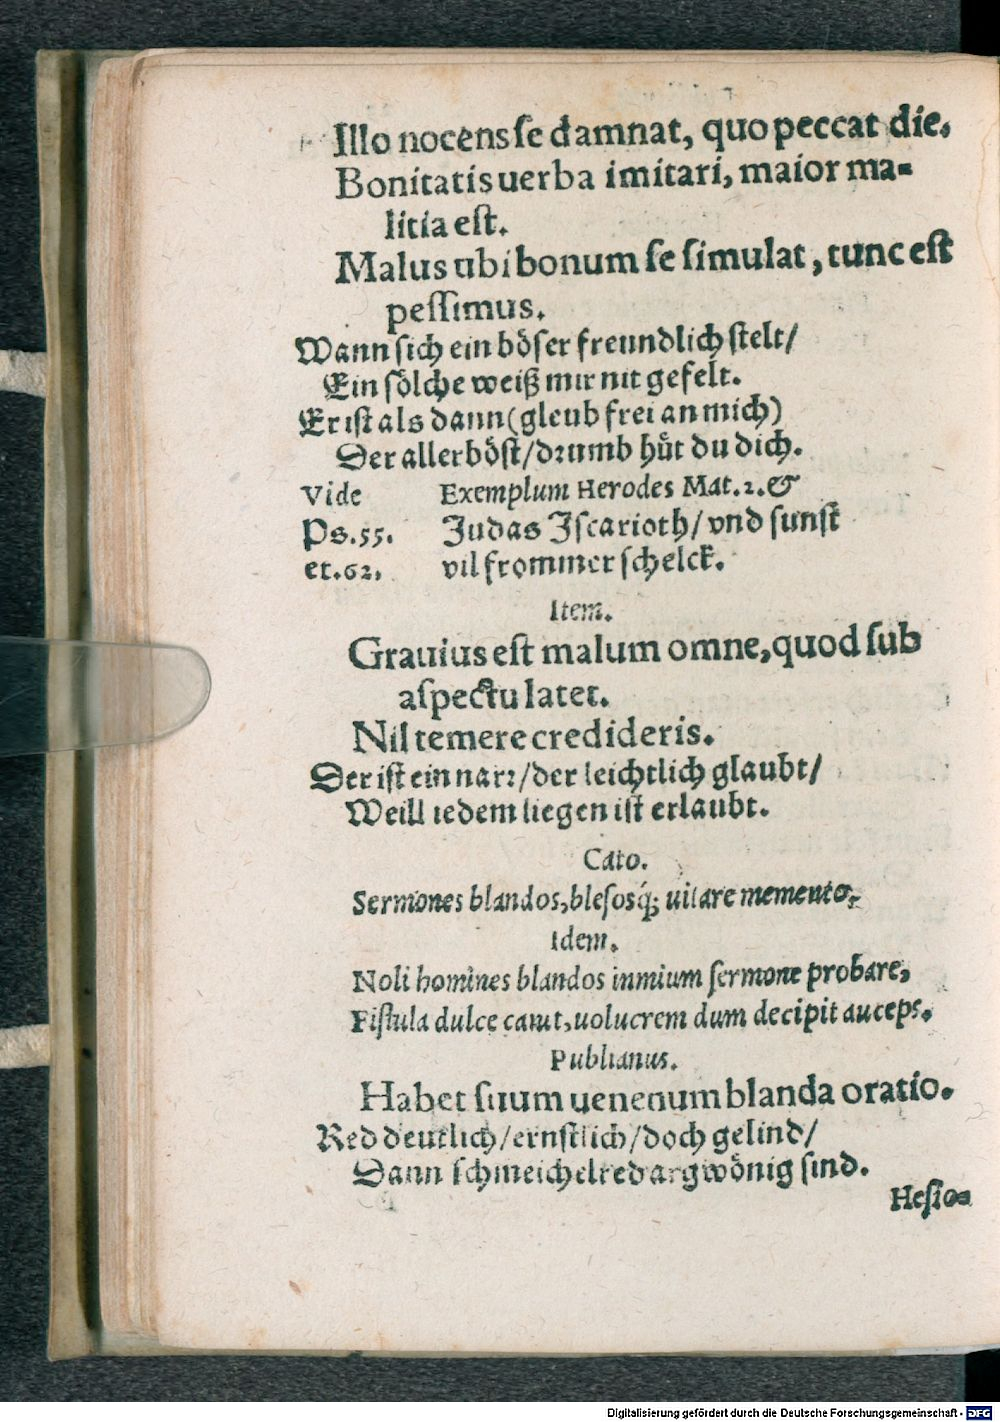 Illo nocens se damnat, quo peccat die.
Bonitatis uerba imitari, maior ma-
litia eſt.
Malus ubi bonum se simulat, tunc eſt
peſſimus.
Wann ſich ein böſer freundlich ſtelt/
Ein ſölche weiß mir nit gefelt.
Er iſt als dann (gleub frei an mich)
Der allerböſt/drumb hüt du dich.
Vide Exemplum Herodes Mat.2.&
Ps.55. Judas Iſcarioth/ vnd ſunſt
et.62. vil frommer ſchelck.
Item.
Grauius eſt malum omne, quod ſub
aſpectu latet.
Nil temere credideris.
Der iſt ein narr/der leichtlich glaubt/
Weill iedem liegen iſt erlaubt.
Cato.
Sermones blandos, bleſosq́; uitare memento.
Idem.
Noli homines blandos inmium ſermone probare,
Fiſtula dulce canit, uolucrem dum decipit auceps.
Publianus.
Habet ſuum uenenum blanda oratio.
Red deutlich/ernſtlich/doch gelind/
Dann ſchmeichelred argwönig ſind.
Heſio-
Digitalisierung gefördert durch die Deutsche Forschungsgemeinschaft - DFG